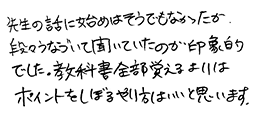 先生の話に始めはそうでもなかったが、
段々うなづいて聞いていたのが印象的
でした。教科書全部覚えるよりは
ポイントをしぼるやり方はいいと思います。